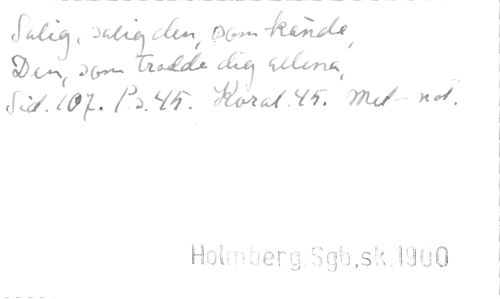 Salig, salig den, som kände,
Den, som trodde dig allena,
Sid. 107. Ps. 45. Koral. 45. Mel- not.
Holmberg.Sgb,sk.1900